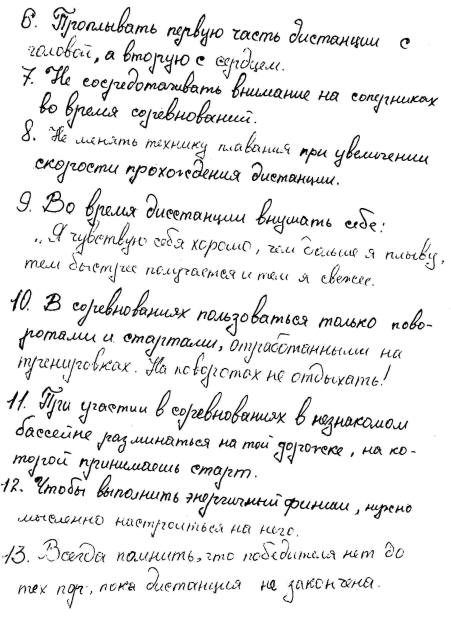 6. Проплывать первую часть дистанции с
головой, а вторую с сердцем.
7. Не сосредотачивать внимание на соперниках
во время соревнований.
8. Не менять технику плавания при увеличении
скорости прохождения дистанции.
9. Во время дистанции внушать себе:
„Я чувствую себя хорошо, чем больше я плыву,
тем быстрее получается и тем я свежее.
10. В соревнованиях пользоваться только пово-
ротами и стартами, отработанными на
тренировках. На поворотах не отдыхать!
11. При участии в соревнованиях в незнакомом
бассейне разминаться на той дорожке, на ко-
торой принимаешь старт.
12. Чтобы выполнить энергичный финиш, нужно
мысленно настроиться на него.
13. Всегда помнить, что победителя нет до
тех пор, пока дистанция не закончена.